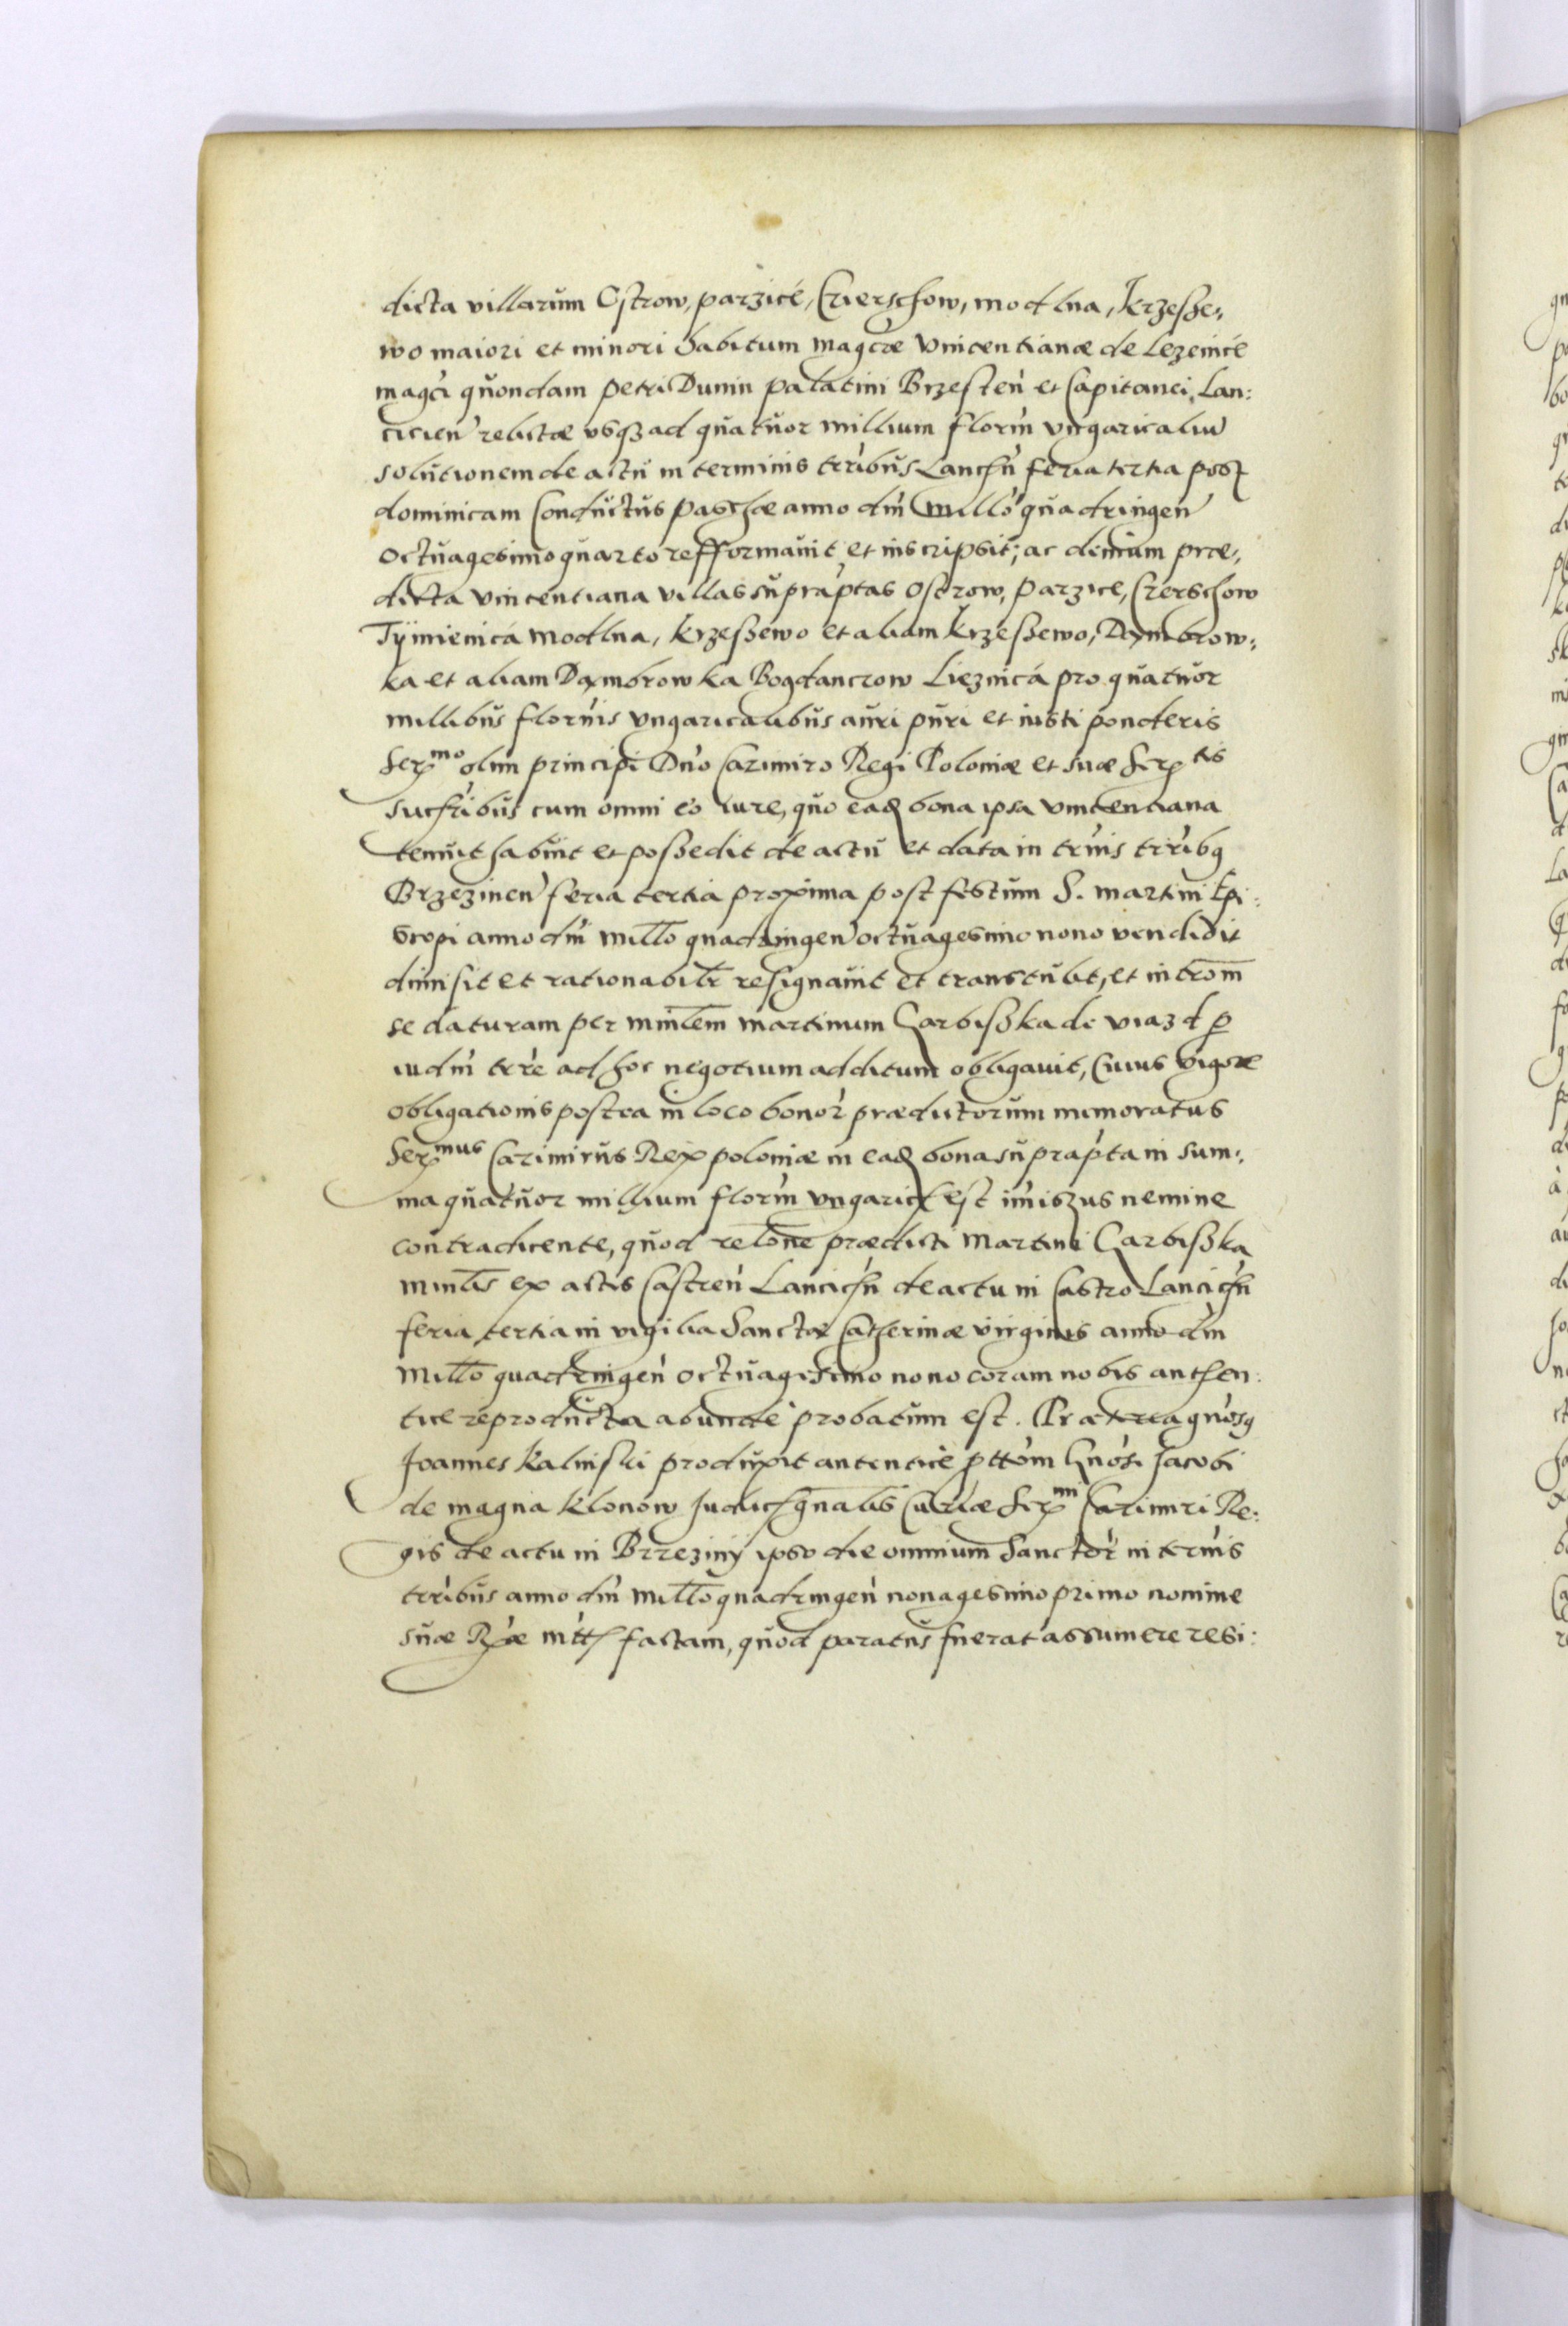 dicta villarum Ostrow, parzicé, Czierschow, modlna, Krzesze,,
wo maiori et minori habitum magcæ Vincentianæ de Lezenicé
magci quondam petri Dunin palatini Brzesten et Capitanei Lan:
cicien relictæ usq3 ad quatuor millium florin ungaricaliu
solutionem de actu in terminis tribus Lanchn feria tertia post
dominicam Conductus paschæ anno dni millo quadringen
octuagesimo quarto refformavit et inscripsit; ac demum præ,,
dicta Vincentiana villas supraptas Ostrow, parzice, Czerschow
Tÿmienica modlna, Krzeszewo et aliam Krzeszewo, Dambrow,,
ka et aliam Dambrowka Bogdanczow Lieznicá pro quatuor
millibus flornis ungaricalibus auri puri et iusti ponderis
Sermo olim principi Dno Cazimiro Regi Poloniæ et suæ Sertis
sucſribus cum omni eo iure, quo ead bona ipsa vincentiana
tenuit habuit et possedit de actu et data in trnis trribq
Brzezinen feria tertia proxima post festum S. martini Epi:
scopi anno dni millo quadringen octuagesimo nono vendidit
dimisit et rationabilr resignavit et transtulit, et introm
se daturam per minlem martinum Garbiszka de viazd p
iudm trre ad hoc negotium additum obligavit, Cuius vigore
obligationis postea in loco bonor prædictorum memoratus
Sermus Cazimirus Rex poloniæ in ead bona suprapta in sum,,
ma quatuor millium florin ungaricl est imiszus nemine
contradicente, quod relone prædicti martini Garbiszka
minlis ex actis Castren Lancichn de actu in Castro Lancichn
feria tertia in vigilia Sanctæ Catherinæ virginis anno dni
millo quadringen octuagesimo nono coram nobis anthen:
tice reproducta abunde probatum est. Præterea gnosq
Joannes Kalinski produxit antenticé pttom Gnosi Jacobi
de magna Klonow Judich gnalis Curiæ Sermi Cazimiri Re:
gis de actu in Brzeziny ipso die omnium Sanctor in trnis
trribus anno dni millo quadringen nonagesimo primo nomine
suæ Rxæ mtt factam, quod paratus fuerat assumere resi: